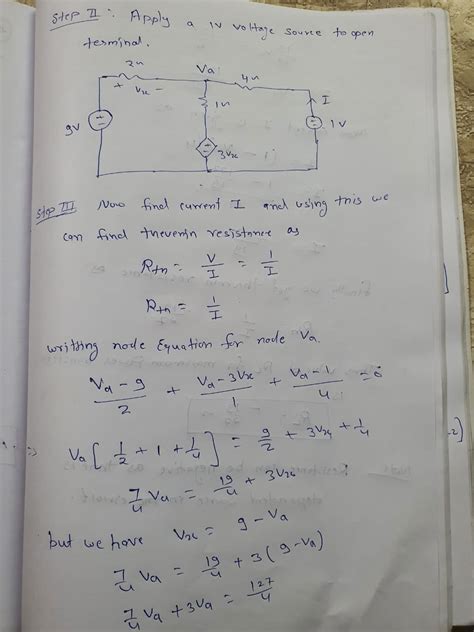 Step II : Apply a 1V voltage source to open
terminal.
2Ω Va 4Ω
+ Vx - I
1Ω
9V 1V
3Vx
Step III Now find current I and using this we
can find thevenin resistance as
Rth = V/I = 1/I
Rth = 1/I
writting node Equation for node Va.
(Va - 9)/2 + (Va - 3Vx)/1 + (Va - 1)/4 = 0
⇒ Va [ 1/2 + 1 + 1/4 ] = 9/2 + 3Vx + 1/4
7/4 Va = 19/4 + 3Vx
but we have Vx = 9 - Va
7/4 Va = 19/4 + 3(9 - Va)
7/4 Va + 3Va = 127/4